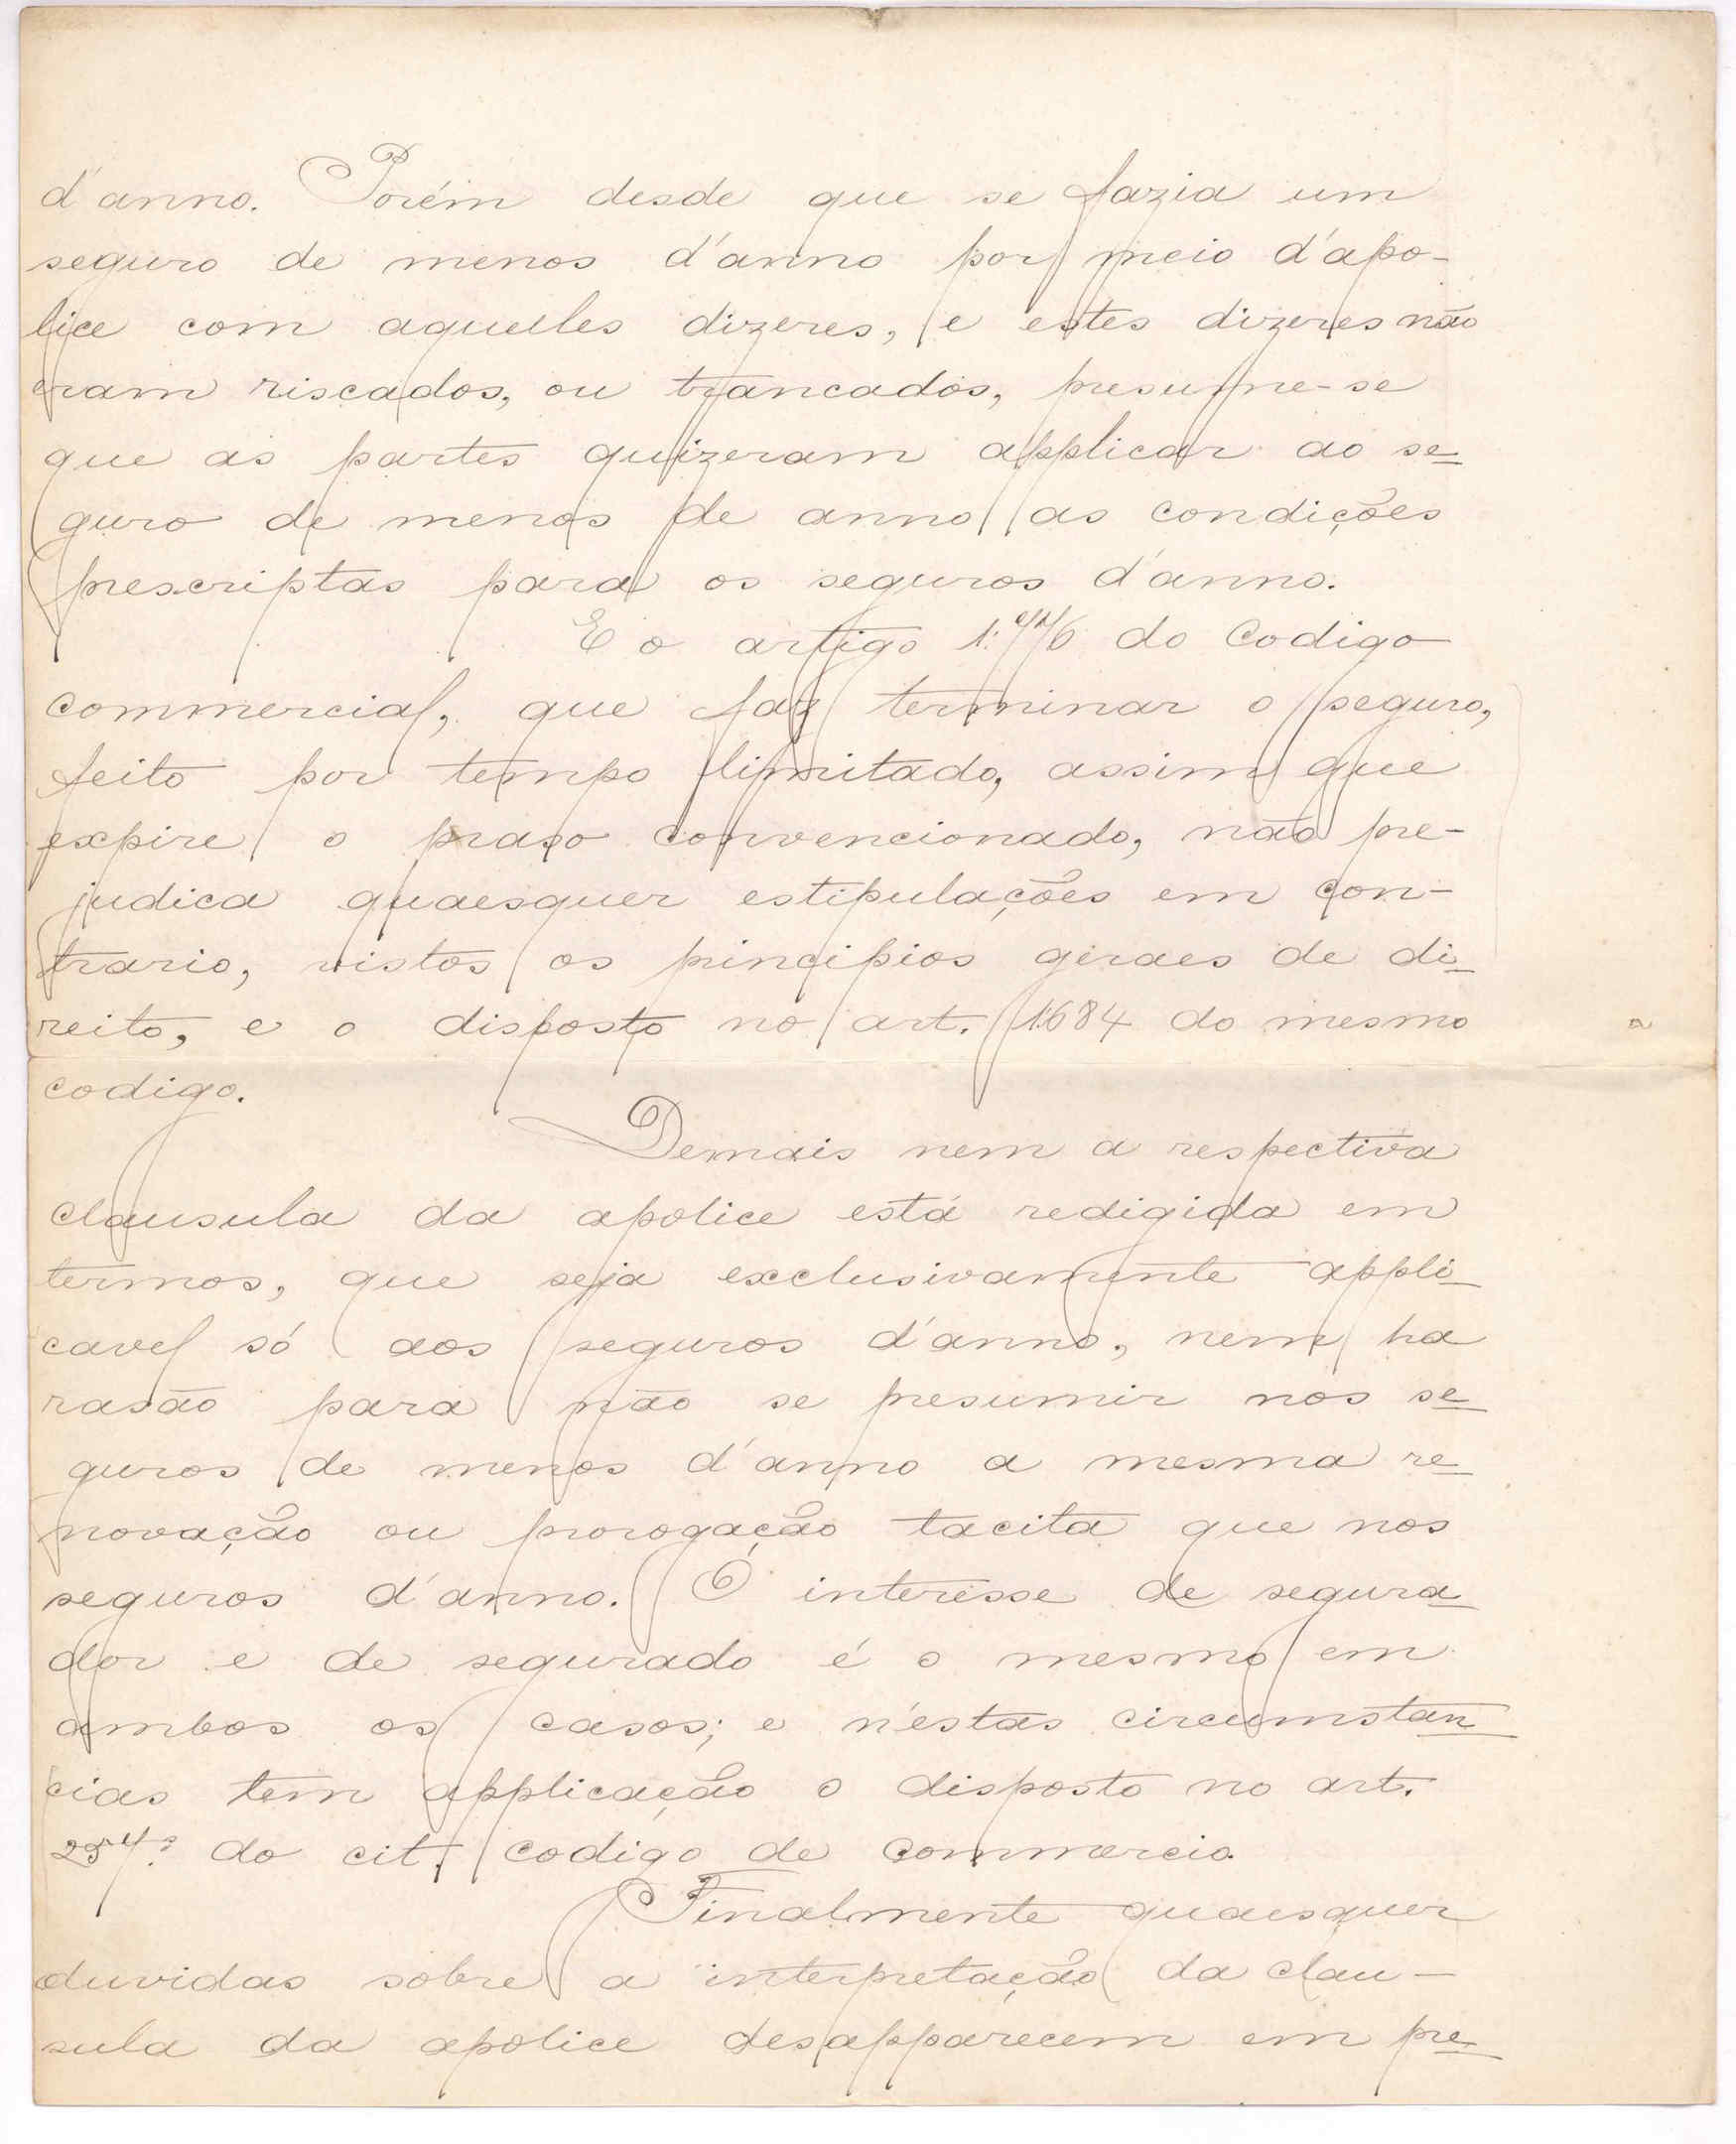 d'anno. Porém desde que se fazia um
seguro de menos d'anno por meio d'apo-
lice com aquelles dizeres, e estes dizeres não
eram riscados, ou trancados, presume-se
que as partes quizeram applicar ao se-
guro de menos de anno as condições
prescriptas para os seguros d'anno.
E o artigo do Codigo
commercial, que faz terminar o seguro,
feito por tempo limitado, assim que
expire o praso convencionado, não pre-
judica quaesquer estipulações em con-
trario, vistos os principios geraes de di-
reito, e o disposto no art. 1684 do mesmo
codigo.
Demais nem a respectiva
clausula da apolice está redigida em
termos, que seja exclusivamente appli-
cavel só aos seguros d'anno, nem ha
rasão para não se presumir nos se-
guros de menos d'anno a mesma re-
novação ou prorogação tacita que nos
seguros d'anno. O interesse de segura-
dor e de segurado é o mesmo em
ambos os casos; e n'estas circumstan-
cias tem applicação o disposto no art.
do cit. codigo de commercio.
Finalmente quaesquer
duvidas sobre a interpretação da clau-
sula da apolice desapparecem em pre-